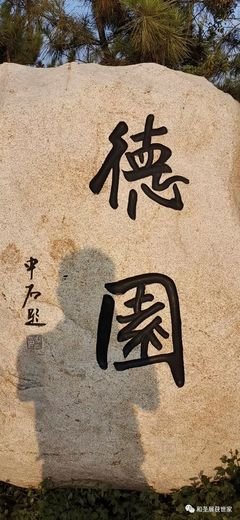 德園
申石题
和圣展获世家